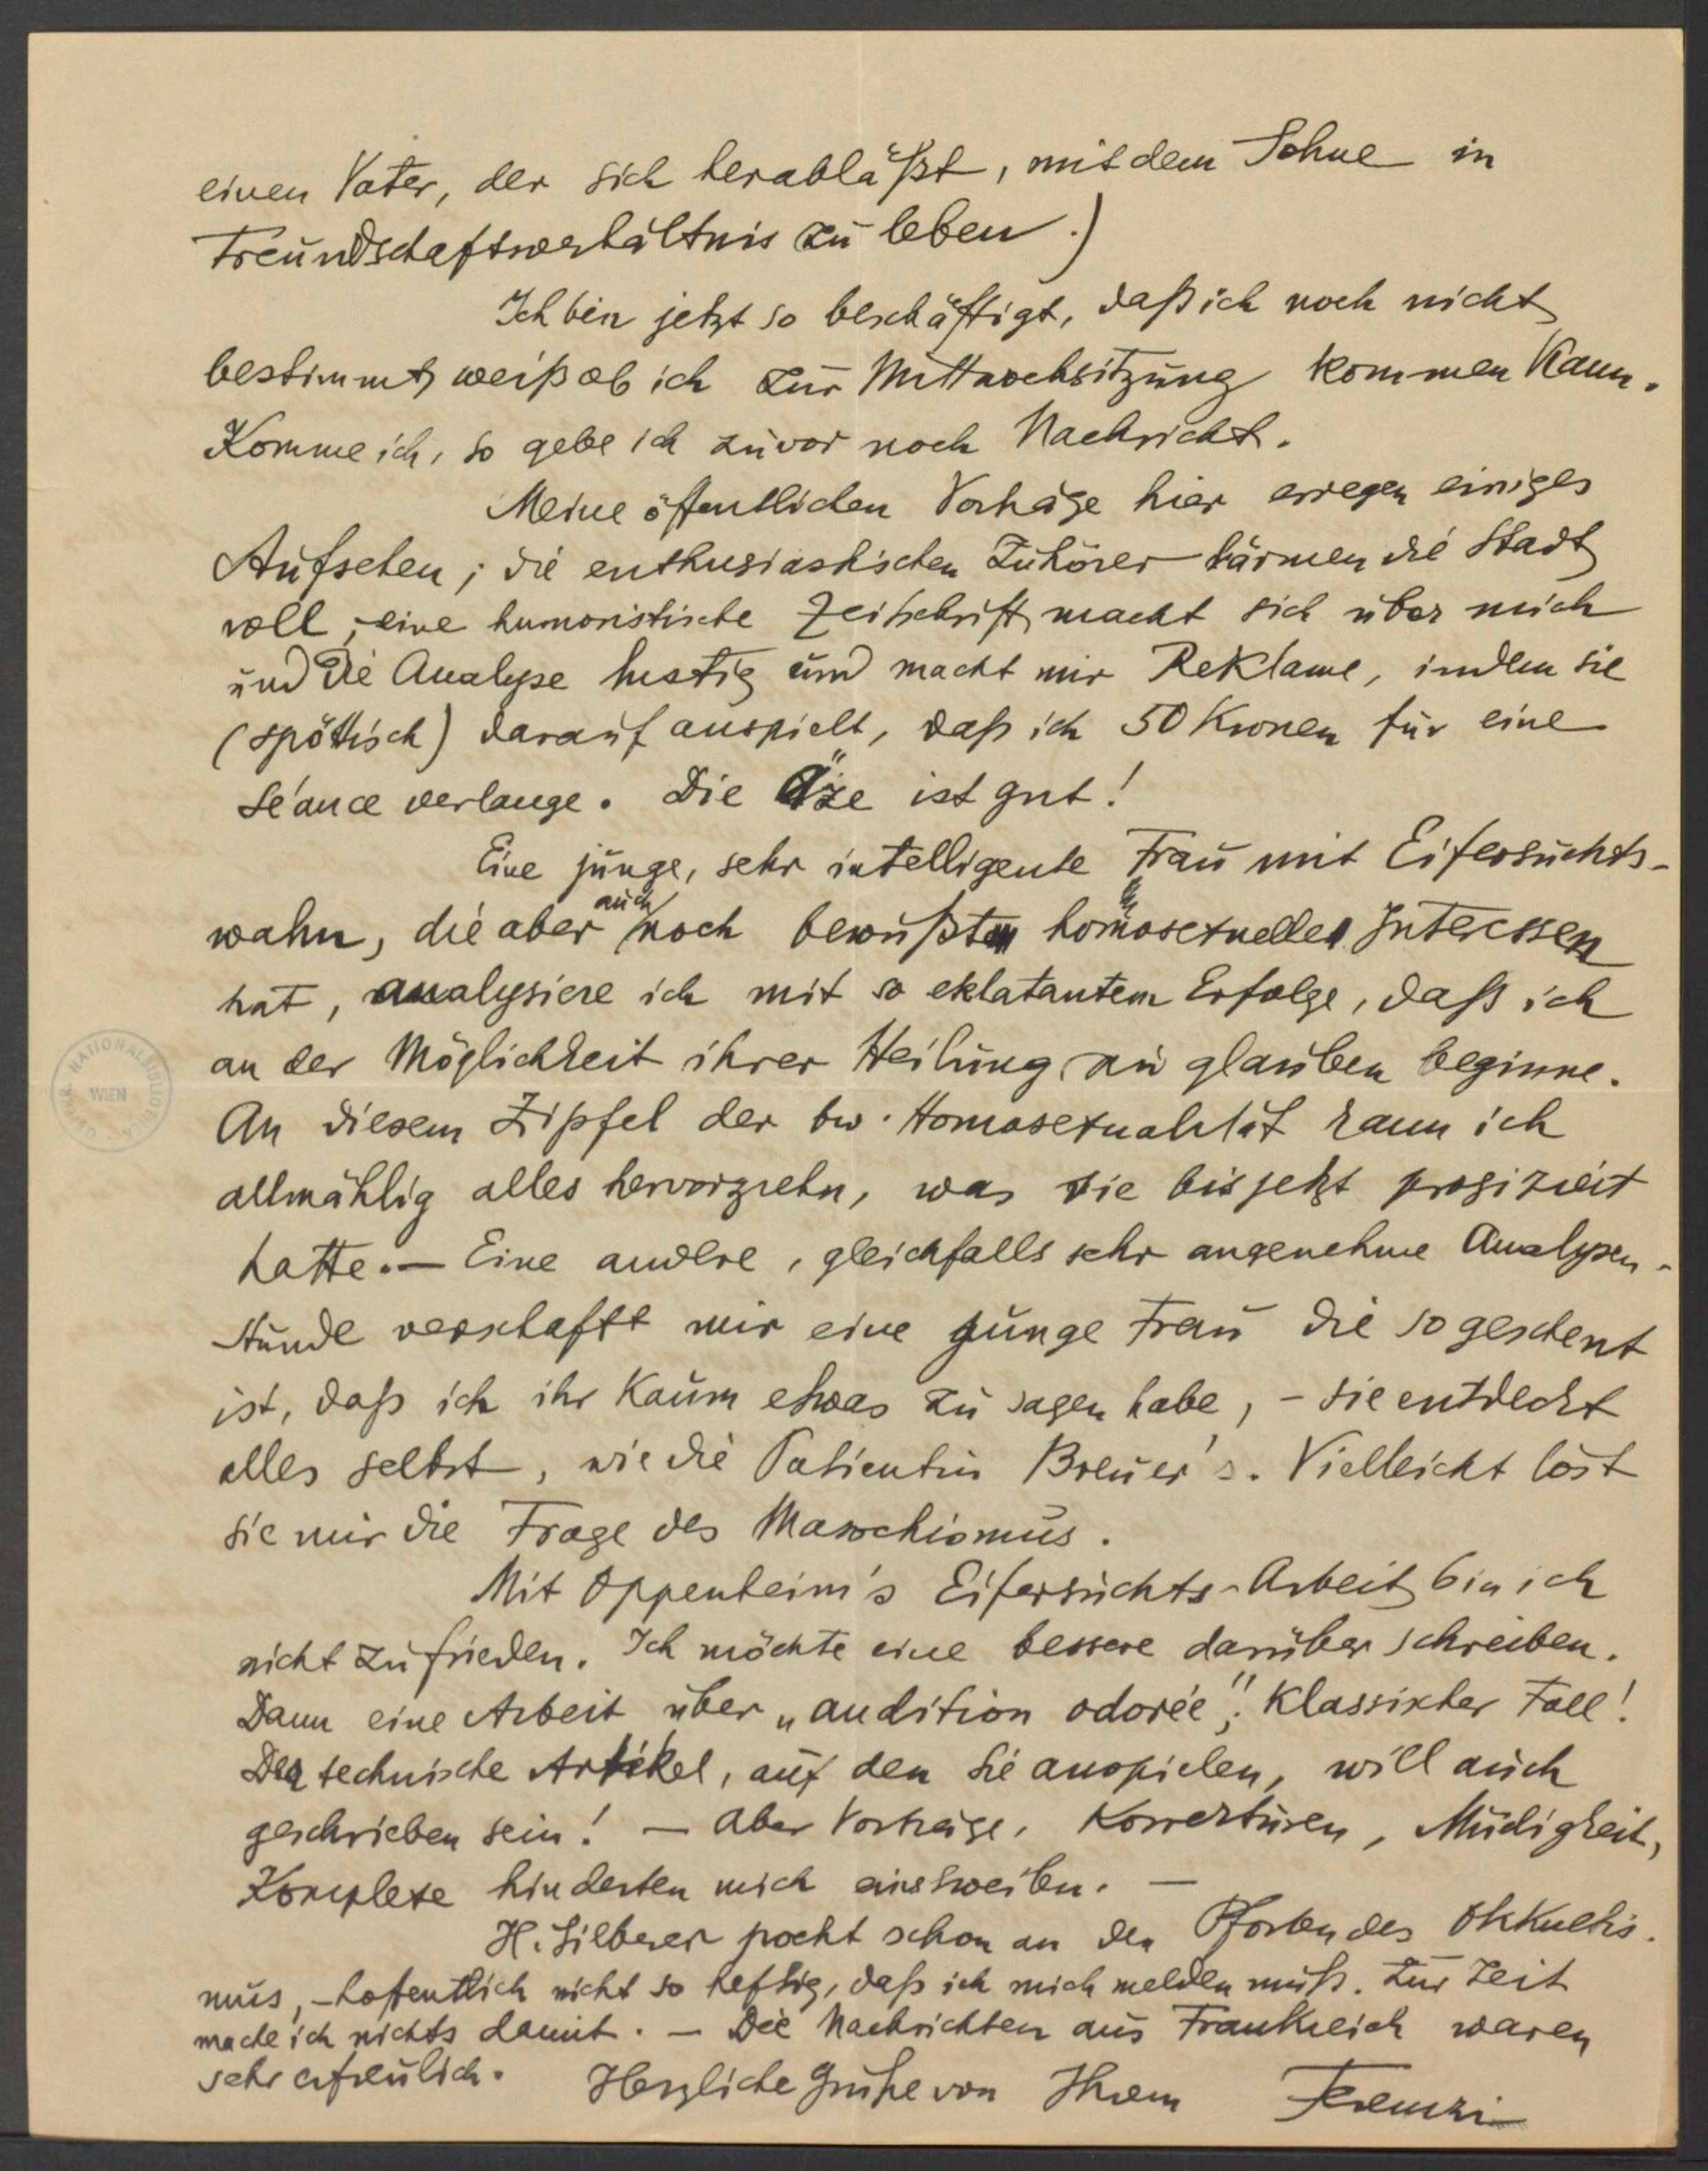 einen Vater, der sich herabläßt, mit dem Sohne in
Freundschaftsverhältnis zu leben.)
Ich bin jetzt so beschäftigt, daß ich noch nicht
bestimmt weiß ob ich zur Mittwochsitzung kommen kann.
Komme ich, so gebe ich zuvor noch Nachricht.
Meine öffentlichen Vorträge hier erregen einiges
Aufsehen; die enthusiastischen Zuhörer lärmen die Stadt
voll; eine humoristische Zeitschrift macht sich über mich
und die Analyse lustig und macht mir Reklame, indem sie
(spöttisch) darauf anspielt, daß ich 50 Kronen für eine
Séance verlange. Die ist gut!
Eine junge, sehr intelligente Frau mit Eifersuchts-
wahn, die aber auch noch bewußte homosexuelle Interessen
hat, analysiere ich mit so eklatantem Erfolge, daß ich
an der Möglichkeit ihrer Heilung zu glauben beginne.
An diesem Zipfel der bw. Homosexualität kann ich
allmählig alles hervorziehn, was sie bis jetzt projiziert
hatte. — Eine andere, gleichfalls sehr angenehme Analysen-
stunde verschafft mir eine junge Frau die so gescheut
ist, daß ich ihr kaum etwas zu sagen habe, – sie entdeckt
alles selbst, wie die Patientin Breuer's. Vielleicht löst
sie mir die Frage des Masochismus.
Mit Oppenheim's Eifersuchts-Arbeit bin ich
nicht zufrieden. Ich möchte eine bessere darüber schreiben.
Dann eine Arbeit über „audition odorée“; klassischer Fall!
Der technische Artikel, auf den Sie anspielen, will auch
geschrieben sein! — Aber Vorträge, Korrekturen, Müdigkeit,
Komplexe hinderten mich einstweilen. —
H. Silberer pocht schon an den Pforten des Okkultis-
mus, – hoffentlich nicht so heftig, daß ich mich melden muß. Zur Zeit
mache ich nichts damit. — Die Nachrichten aus Frankreich waren
sehr erfreulich. Herzliche Grüße von Ihrem Ferenczi
ÖSTERR. NATIONALBIBLIOTHEK
WIEN